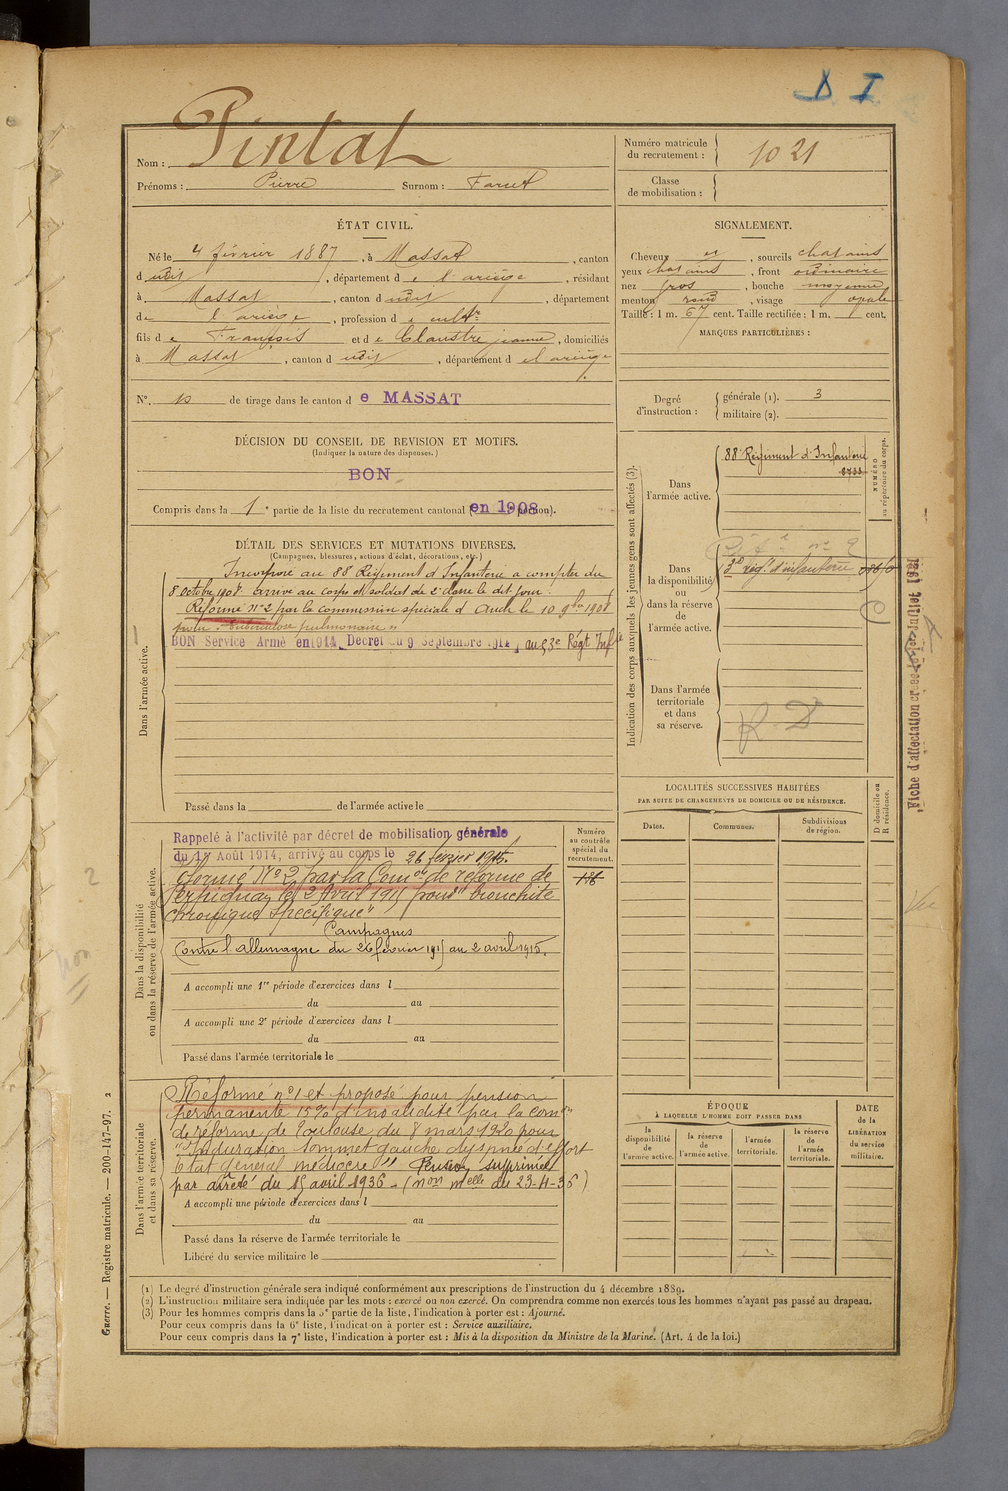 D. I.
Nom : Pintat
Prénoms : Pierre Surnom : Farset
Numéro matricule du recrutement : 1021
Classe de mobilisation :
ÉTAT CIVIL.
Né le 4 février 1887, à Massat, canton
d udit, département de l'ariège, résidant
à Massat, canton d udit, département
de l'ariège, profession de cultr
fils de François et de Claustre jeanne, domiciliés
à Massat, canton d udit, département de l'ariège
N°. 10 de tirage dans le canton de MASSAT
DÉCISION DU CONSEIL DE REVISION ET MOTIFS.
(Indiquer la nature des dispenses.)
BON
Compris dans la 1e partie de la liste du recrutement cantonal en 1908
DÉTAIL DES SERVICES ET MUTATIONS DIVERSES.
(Campagnes, blessures, actions d'éclat, décorations, etc.)
Dans l'armée active.
Incorporé au 88 Régiment d'Infanterie a compter du
8 octobre 1908 arrivé au corps et soldat de 2e classe le dit jour.
Réformé n°2 par la commission spéciale d'Auch le 10 9bre 1908
pour "tuberculose pulmonaire"
BON Service Armé en 1914, Decret du 9 Septembre 1914, au 53e Régt Infie
Passé dans la de l'armée active le
Dans la disponibilité ou dans la réserve de l'armée active.
Rappelé à l'activité par décret de mobilisation générale
du 1er Août 1914, arrivé au corps le 26 février 1915.
Réformé N°2 par la Comon de réforme de
Perpignan le 2 Avril 1915 pour "bronchite
chronique spécifique"
Campagnes
Contre l'allemagne du 26 février 1915 au 2 avril 1915.
Numéro au contrôle spécial du recrutement.
A accompli une 1re période d'exercices dans l
du au
A accompli une 2e période d'exercices dans l
du au
Passé dans l'armée territoriale le
Dans l'armée territoriale et dans sa réserve.
Réformé n°1 et proposé pour pension
permanente 15% d'invalidité par la comon
de réforme de Toulouse du 8 mars 1920 pour
"Induration sommet gauche dyspnée d'effort
Etat général médiocre" Pension supprimée
par arrêté du 15 avril 1936 - (non melle du 23-4-36)
A accompli une période d'exercices dans l
du au
Passé dans la réserve de l'armée territoriale le
Libéré du service militaire le
SIGNALEMENT.
Cheveux et, sourcils chatains
yeux chatains, front ordinaire
nez gros, bouche moyenne
menton rond, visage ovale
Taille : 1 m. 67 cent. Taille rectifiée : 1 m. cent.
MARQUES PARTICULIÈRES :
Degré d'instruction : générale (1). 3
militaire (2).
Indication des corps auxquels les jeunes gens sont affectés (3).
NUMÉRO au répertoire du corps.
Dans l'armée active.
88e Régiment d'Infanterie
8733
Dans la disponibilité ou dans la réserve de l'armée active.
53e régt d'infanterie
Dans l'armée territoriale et dans sa réserve.
R. D
Fiche d'affectation créée le 1er Juillet 1931
LOCALITÉS SUCCESSIVES HABITÉES
PAR SUITE DE CHANGEMENTS DE DOMICILE OU DE RÉSIDENCE.
Dates. Communes. Subdivisions de région. D domicile ou R résidence.
Vu
non
2
ÉPOQUE
À LAQUELLE L'HOMME DOIT PASSER DANS
la disponibilité de l'armée active. la réserve de l'armée active. l'armée territoriale. la réserve de l'armée territoriale.
DATE de la LIBÉRATION du service militaire.
Guerre. — Registre matricule. — 200-147-97. 2
(1) Le degré d'instruction générale sera indiqué conformément aux prescriptions de l'instruction du 4 décembre 1889.
(2) L'instruction militaire sera indiquée par les mots : exercé ou non exercé. On comprendra comme non exercés tous les hommes n'ayant pas passé au drapeau.
(3) Pour les hommes compris dans la 5e partie de la liste, l'indication à porter est : Ajourné.
Pour ceux compris dans la 6e liste, l'indication à porter est : Service auxiliaire.
Pour ceux compris dans la 7e liste, l'indication à porter est : Mis à la disposition du Ministre de la Marine. (Art. 4 de la loi.)